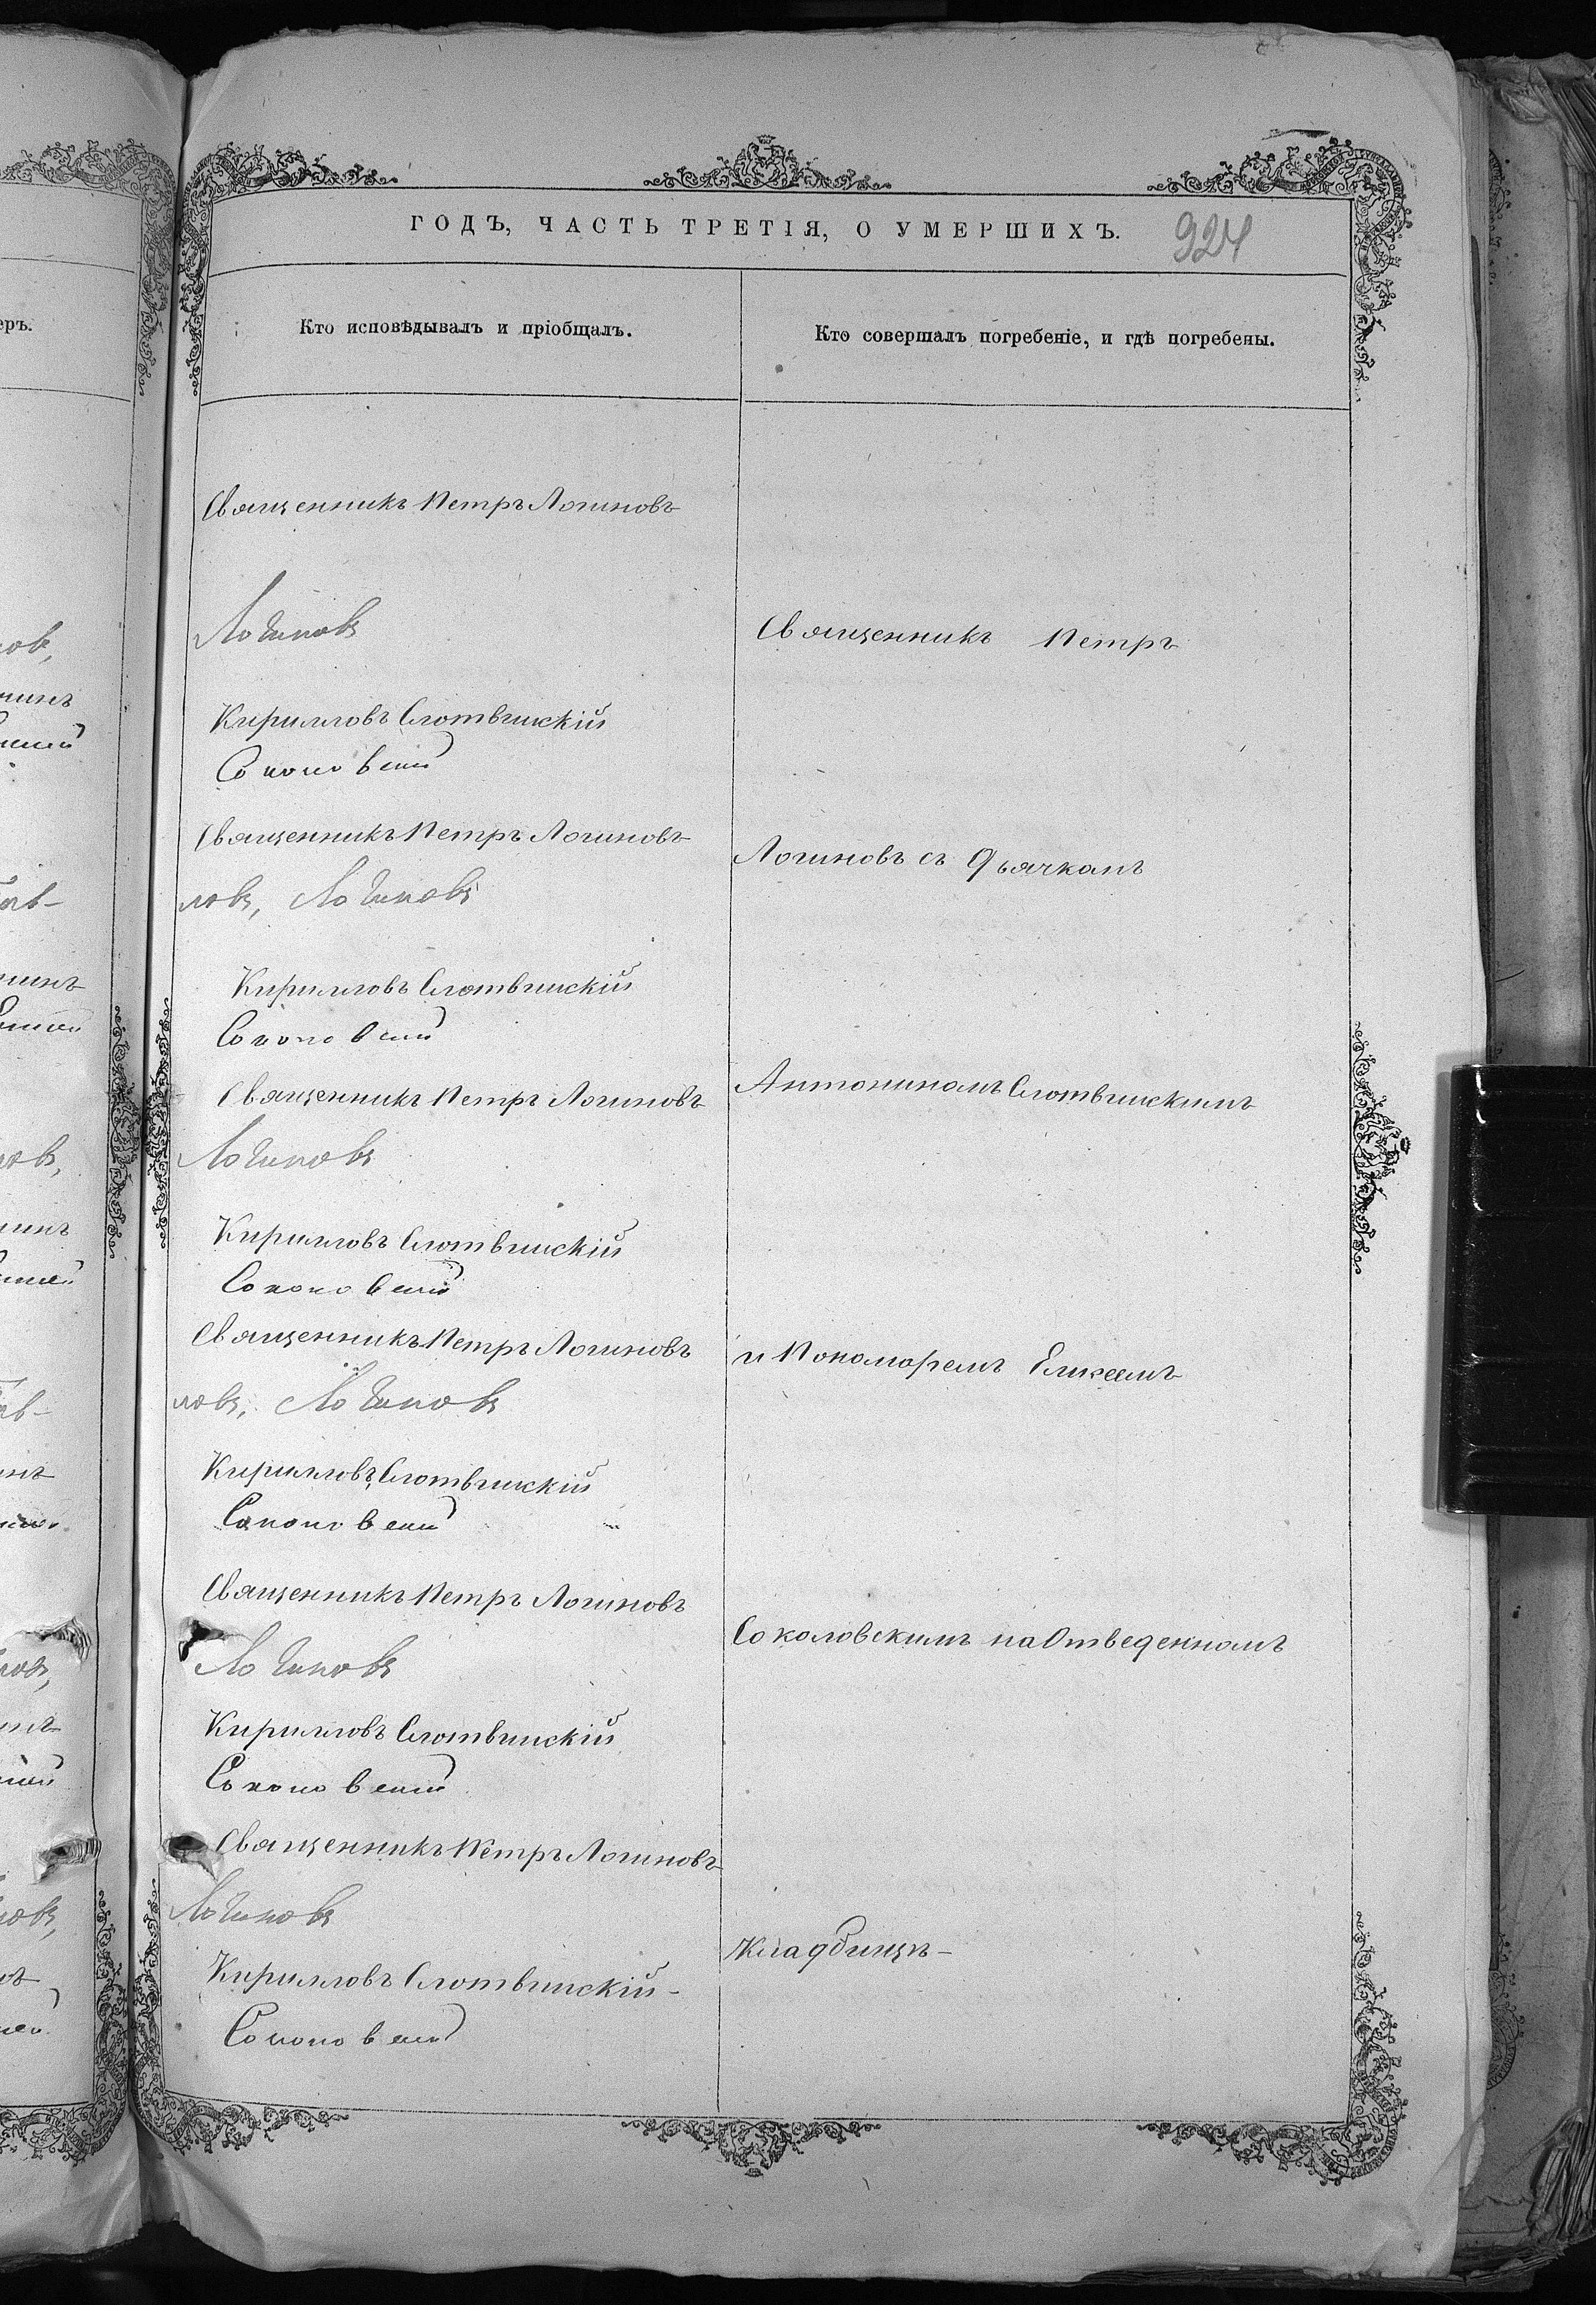 ГОДЪ, ЧАСТЬ ТРЕТІЯ, О УМЕРШИХЪ.
924
Кто исповѣдывалъ и пріобщалъ.
Кто совершалъ погребеніе, и гдѣ погребены.
еръ.
Священникъ Петръ Логиновъ
Логиновъ
Кирилловъ Слотвинскій
Соколовскій
Священникъ Петръ Логиновъ
ловъ, Логиновъ
Кирилловъ Слотвинскій
Соколовскій
Священникъ Петръ Логиновъ
Логиновъ
Кирилловъ Слотвинскій
Соколовскій
Священникъ Петръ Логиновъ
ловъ, Логиновъ
Кирилловъ Слотвинскій
Соколовскій
Священникъ Петръ Логиновъ
Логиновъ
Кирилловъ Слотвинскій
Соколовскій
Священникъ Петръ Логиновъ
Логиновъ
Кирилловъ Слотвинскій
Соколовскій
Священникъ Петръ
Логиновъ съ Дьячкомъ
Антониномъ Слотвинскимъ
и Пономаремъ
Соколовскимъ на Отведенномъ
Кладбищѣ